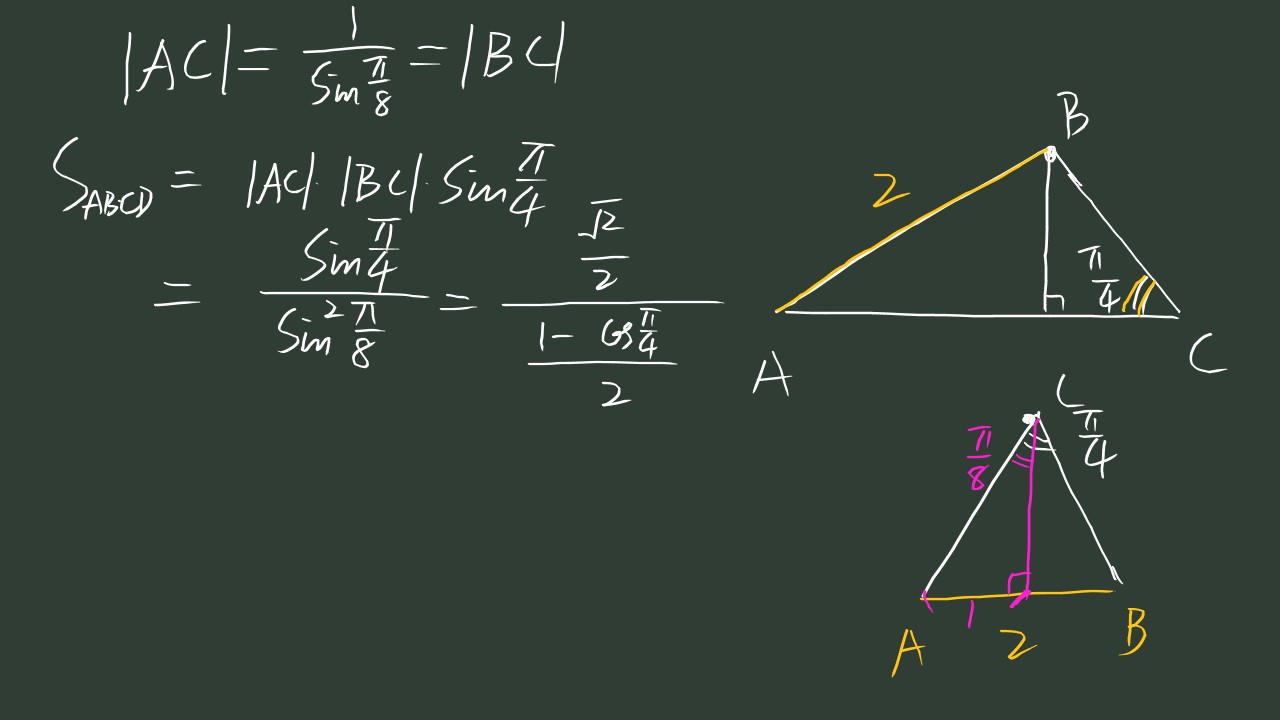 |AC| = 1 / sin π/8 = |BC|
S_ABCD = |AC| · |BC| · sin π/4
= sin π/4 / sin² π/8 = (√2 / 2) / ((1 - cos π/4) / 2)
B
2
π/4
A
C
C
π/8
π/4
1
A
2
B